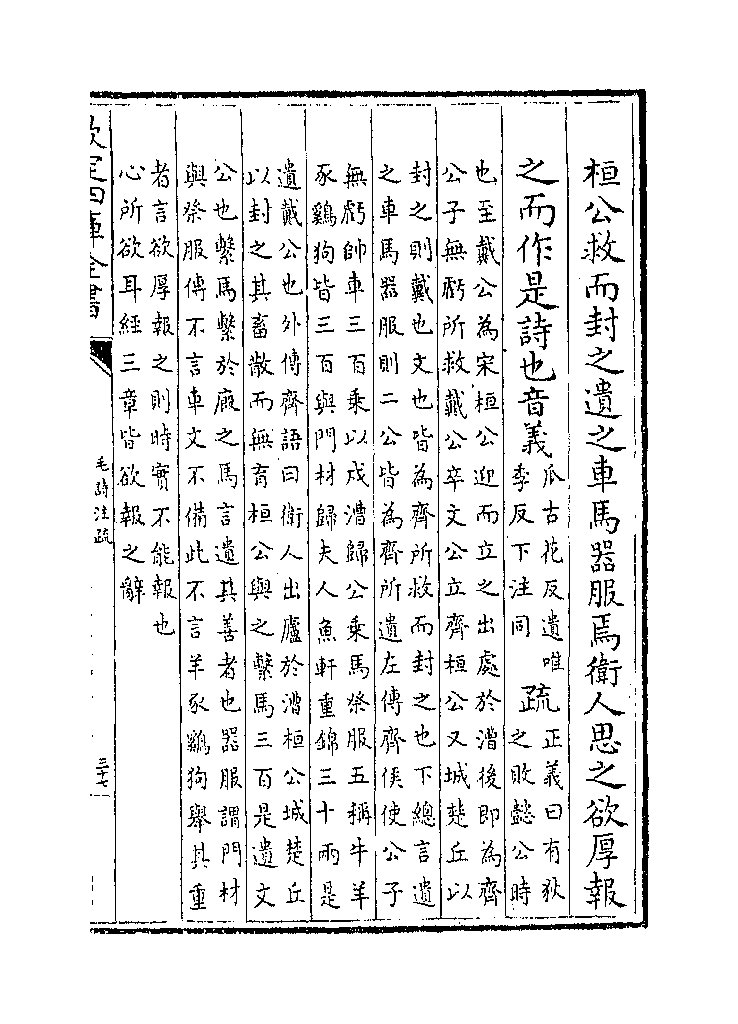 桓公救而封之遺之車馬器服焉衛人思之欲厚報
之而作是詩也音義
瓜古花反遺唯
季反下注同
疏
正義曰有狄
之敗懿公時
也至戴公為宋桓公迎而立之出處於漕後即為齊
公子無虧所救戴公卒文公立齊桓公又城楚丘以
封之則戴也文也皆為齊所救而封之也下總言遺
之車馬器服則二公皆為齊所遺左傳齊侯使公子
無虧帥車三百乘以戍漕歸公乘馬祭服五稱牛羊
豕鷄狗皆三百與門材歸夫人魚軒重錦三十兩是
遺戴公也外傳齊語曰衛人出廬於漕桓公城楚丘
以封之其畜散而無育桓公與之繫馬三百是遺文
公也繫馬繫於廐之馬言遺其善者也器服謂門材
與祭服傳不言車文不備此不言羊豕鷄狗舉其重
者言欲厚報之則時實不能報也
心所欲耳經三章皆欲報之辭
欽定四庫全書
毛詩注疏
三十七